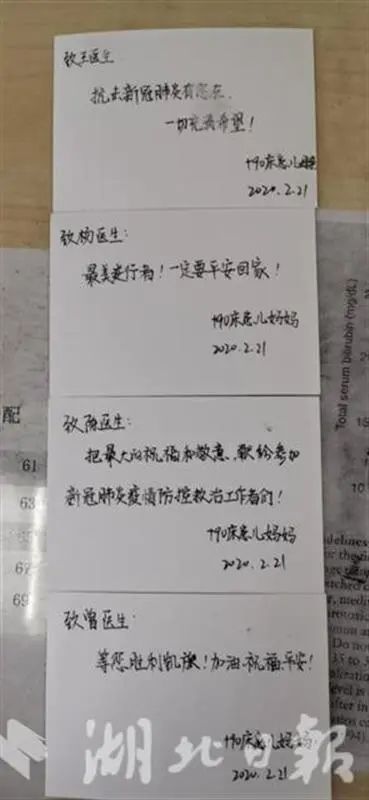 致王医生:
抗击新冠肺炎有您在,
一切充满希望!
+90床患儿妈妈
2020.2.21
致杨医生:
最美逆行者!一定要平安回家!
+90床患儿妈妈
2020.2.21
致陈医生:
把最大的祝福和敬意,献给参加
新冠肺炎疫情防控救治工作者们!
+90床患儿妈妈
2020.2.21
致曾医生:
等您胜利凯旋!加油,祝福,平安!
+90床患儿妈妈
2020.2.21
配
61
63
67
69
Total serum bilirubin (mg/dL)
20
15
10
湖北日报